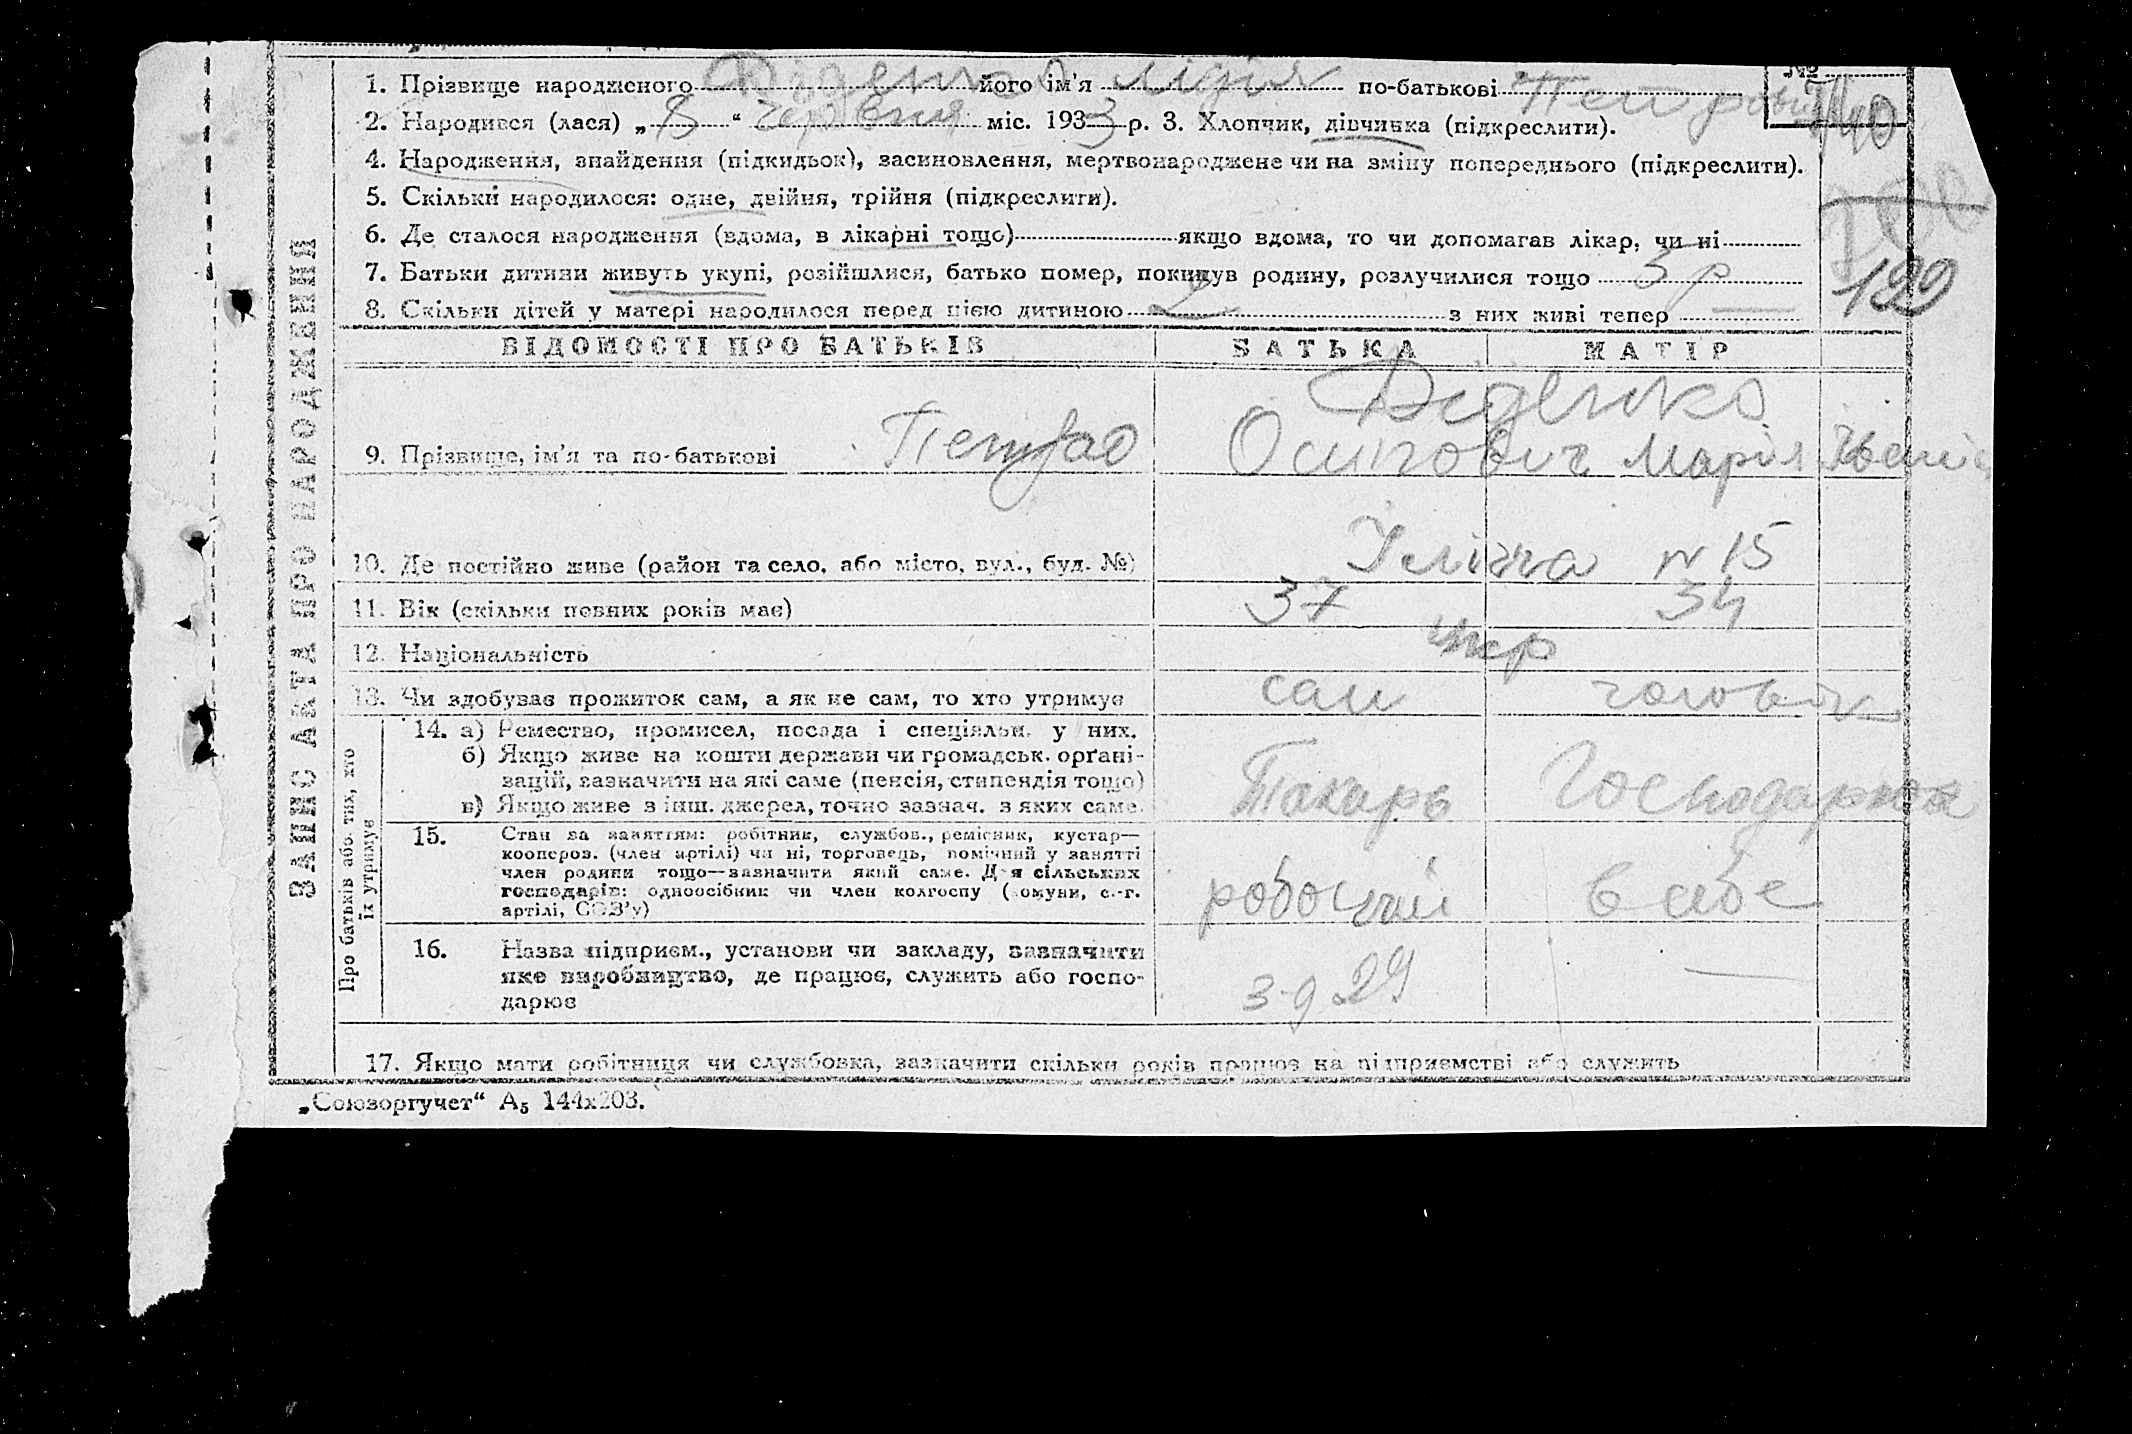 1. Прізвище народженого Діденко його ім'я Лідія по-батькові Петровн
№
2. Народився (лася) „8" червня міс. 1933 р. 3. Хлопчик, дівчинка (підкреслити).
4. Народження, знайдення (підкидьок), засиновлення, мертвонароджене чи на зміну попереднього (підкреслити).
5. Скільки народилося: одне, двійня, трійня (підкреслити).
6. Де сталося народження (вдома, в лікарні тощо) якщо вдома, то чи допомагав лікар, чи ні
7. Батьки дитини живуть укупі, розійшлися, батько помер, покинув родину, розлучилися тощо 3 р
122
8. Скільки дітей у матері народилося перед цією дитиною 2 з них живі тепер —
ЗАПИС АКТА ПРО НАРОДЖЕННЯ
ВІДОМОСТІ ПРО БАТЬКІВ БАТЬКА МАТІР
Діденко
9. Прізвище, ім'я та по-батькові Петро Осипович Марія Іванів
10. Де постійно живе (район та село, або місто, вул., буд. №) Ілліча N 15
11. Вік (скільки повних років має) 37 34
12. Національність укр
13. Чи здобуває прожиток сам, а як не сам, то хто утримує сам чоловік
Про батьків або тих, хто їх утримує
14. а) Ремество, промисел, посада і спеціяльн. у них.
б) Якщо живе на кошти держави чи громадськ. орґані-
зацій, зазначити на які саме (пенсія, стипендія тощо)
в) Якщо живе з інш. джерел, точно зазнач. з яких саме.
Токарь Господарка
15. Стан за заняттям: робітник, службов., ремісник, кустар—
коопероз. (член артілі) чи ні, торговець, помічний у занятті
член родини тощо—зазначити який саме. Для сільських
господарів: одноосібник чи член колгоспу (комуни, с.-г.
артілі, СОЗ'у)
робочий в себе
16. Назва підприєм., установи чи закладу, зазначити
яке виробництво, де працює, служить або госпо-
дарює
з-д 29 —
17. Якщо мати робітниця чи службовка, зазначити скільки років працює на підприємстві або служить
„Союзоргучет" А₅ 144х203.